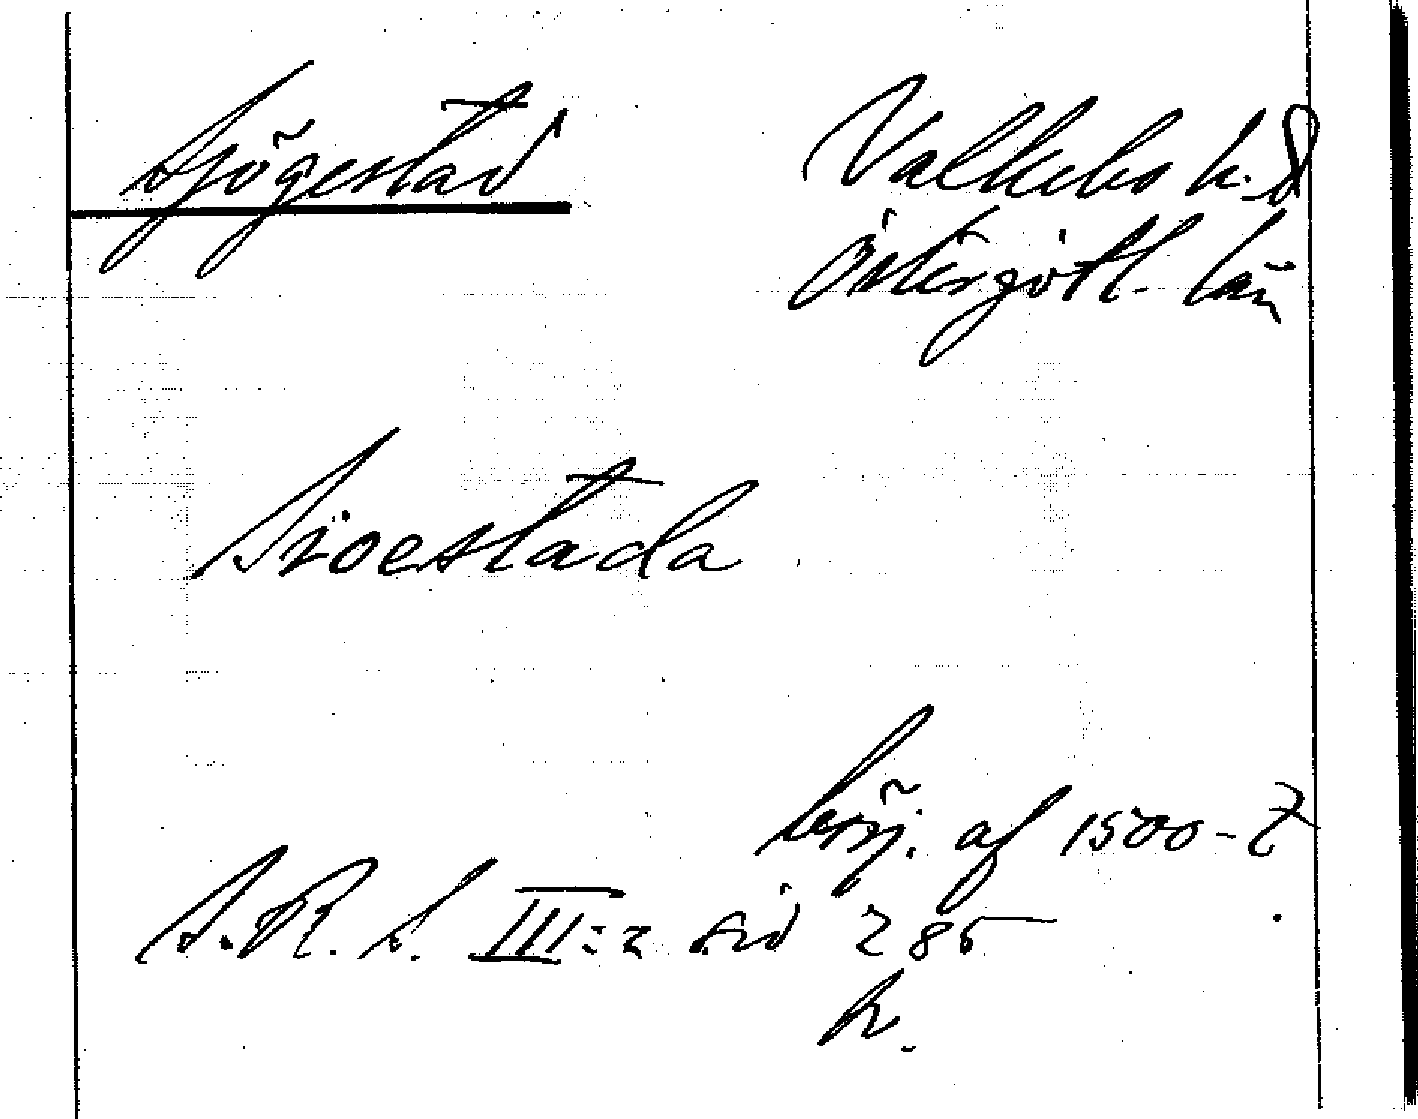 Sjögestad Valkebo h.d
Östergötl. län
Sioestada
börj. af 1500-t
S.R.S. III:2 sid 285
h.